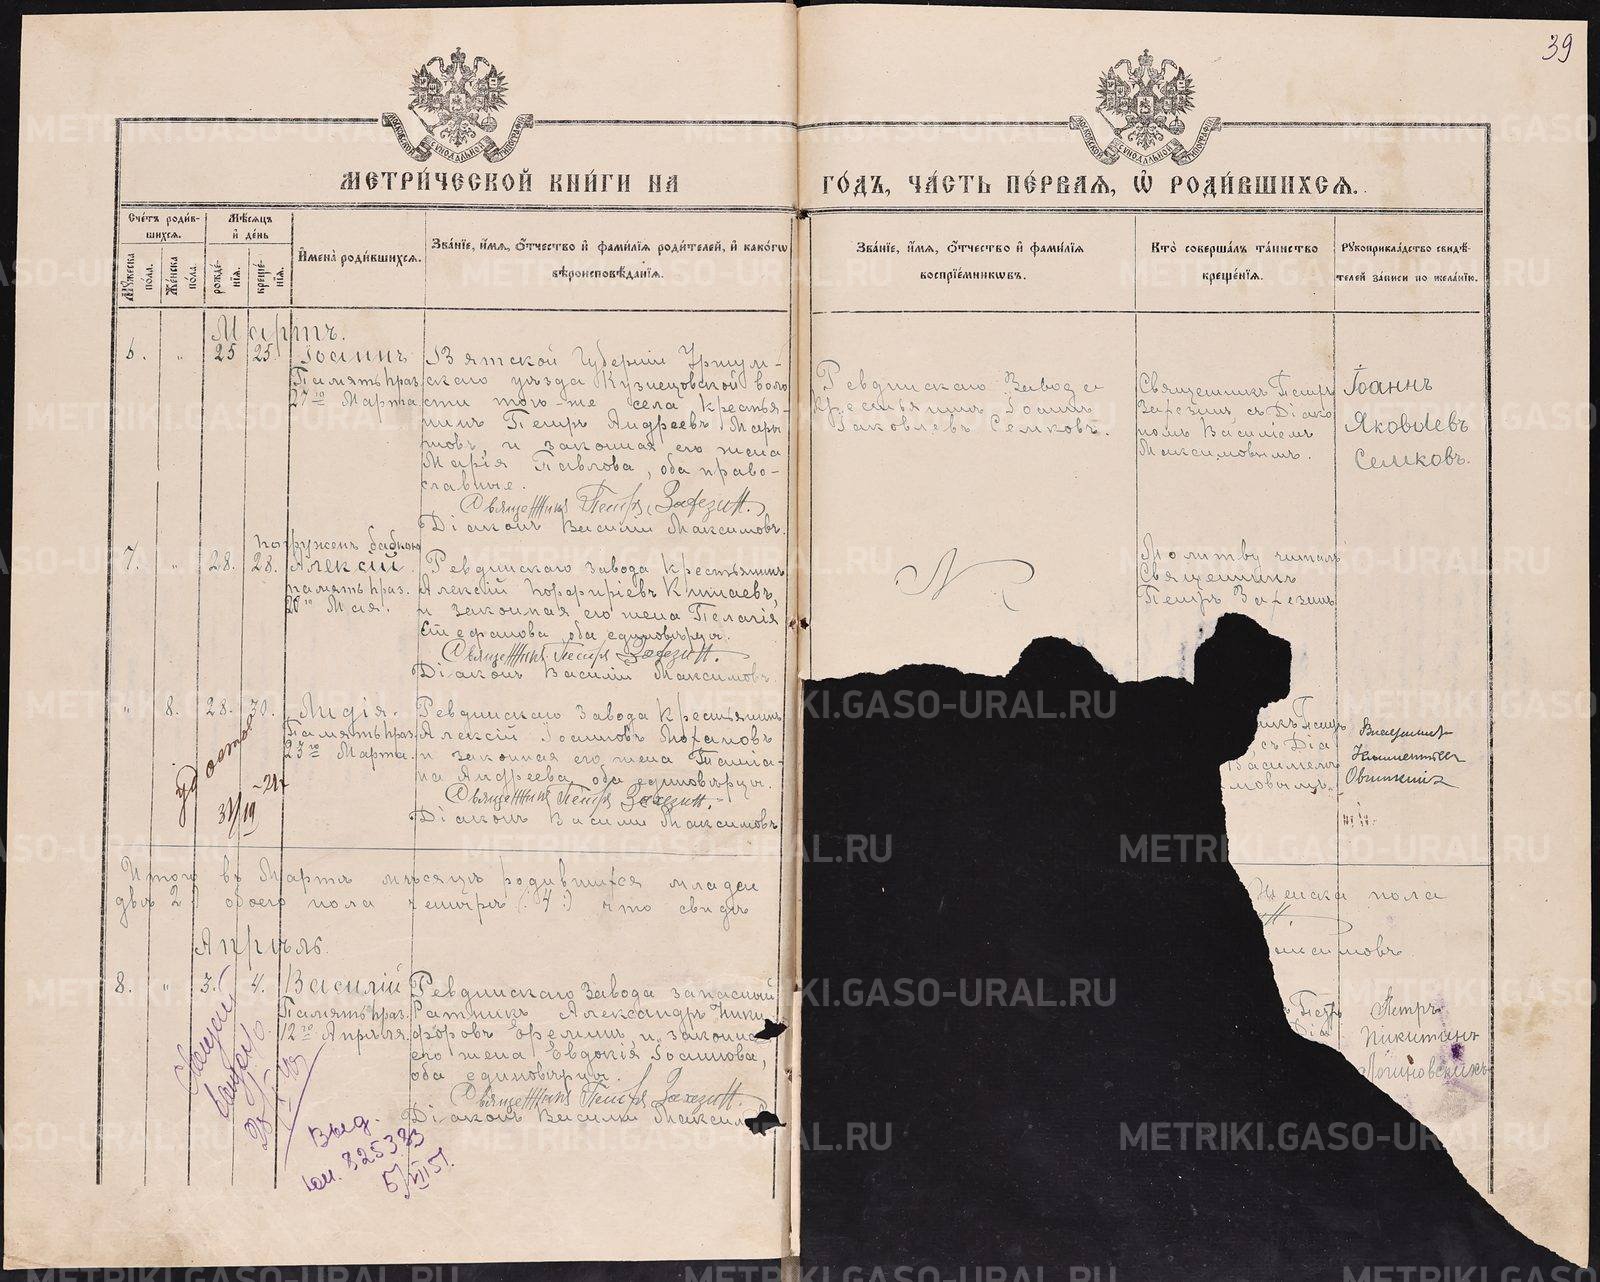 39
МОСКОВСКОЙ СѴНОДАЛЬНОЙ ТИПОГРАФІИ
МОСКОВСКОЙ СѴНОДАЛЬНОЙ ТИПОГРАФІИ
МЕТРИ́ЧЕСКОЙ КНИ́ГИ НА ГО́ДЪ, ЧА́СТЬ ПЕ́РВАЯ, Ѡ РОДИ́ВШИХСЯ.
Сче́тъ роди́в-
шихся.
Мѣ́сяцъ
и҆ де́нь
Му́жеска
по́ла.
Же́нска
по́ла.
рожде́-
нія.
креще́-
нія.
И҆мена̀ роди́вшихся.
Зва́ніе, и҆́мя, ѻ҆́тчество и҆ фами́лія роди́телей, и҆ како́гѡ
вѣроисповѣ́данія.
Зва́ніе, и҆́мя, ѻ҆́тчество и҆ фами́лія
воспріе́мникѡвъ.
Кто̀ соверша́лъ та́инство
креще́нія.
Рꙋкоприкла́дство свидѣ́-
телей за́писи по жела́нію.
Мартъ.
6. " 25 25 Іоаннъ
Память праз.
27го Марта
Вятской Губерніи Уржум-
скаго уѣзда Кузнецовской воло
сти того-же села Крестья-
нинъ Петръ Андреевъ Мары
 и законная его жена
Марія Павлова, оба право-
славные.
Священникъ Петръ Захезин.
Діаконъ Василий Максимовъ.
Ревдинскаго Завода
Крестьянинъ Іоаннъ
Іаковлевъ Семковъ.
Священникъ Петръ
Захезинъ, съ Діако
номъ Василіемъ
Максимовымъ.
Іоаннъ
Яковлевъ
Семковъ.
погруженъ бабкою
7. " 28. 28. Алексій.
память праз.
20го Мая.
Ревдинскаго Завода Крестьянинъ
Алексій Порфиріевъ
и законная его жена Пелагія
Стефанова оба единовѣрцы.
Священникъ Петръ Захезин.
Діаконъ Василий Максимовъ.
Молитву читалъ
Священникъ
Петръ Захезинъ
" 8. 28. 30. Лидія.
Память праз.
23го Марта.
Ревдинскаго Завода Крестьянинъ
Алексій Іоанновъ
и законная его жена Татіа-
на Андреева, оба единовѣрцы.
Священникъ Петръ Захезин.
Діаконъ Василий Максимовъ
никъ Петръ
съ Діа
Василіемъ
мовымъ.
удостов
31/19
Итого въ Мартѣ мѣсяцѣ родившихся младен
двѣ 2:) обоего пола четыре (:4:) что свидѣ
Женска пола
аксимовъ.
Апрѣль.
8. " 3. 4. Василій
Память праз.
12го Апрѣля
Ревдинскаго Завода запасный
Ратникъ Александръ Ники
форовъ Еремин и законна
его жена Евдокія Іоаннова,
оба единовѣрцы.
Священникъ Петръ Захезин.
Діаконъ Василий Максим
Петр
Діа
Петръ
Никитинъ
Логиновскихъ
Выд.
825383
5/VII 51.
METRIKI.GASO-URAL.RU